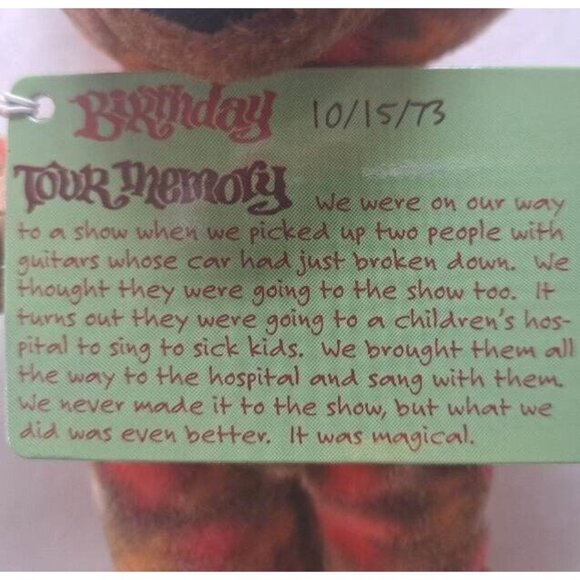 Birthday 10/15/73
Tour Memory We were on our way
to a show when we picked up two people with
guitars whose car had just broken down. We
thought they were going to the show too. It
turns out they were going to a children's hos-
pital to sing to sick kids. We brought them all
the way to the hospital and sang with them.
We never made it to the show, but what we
did was even better. It was magical.